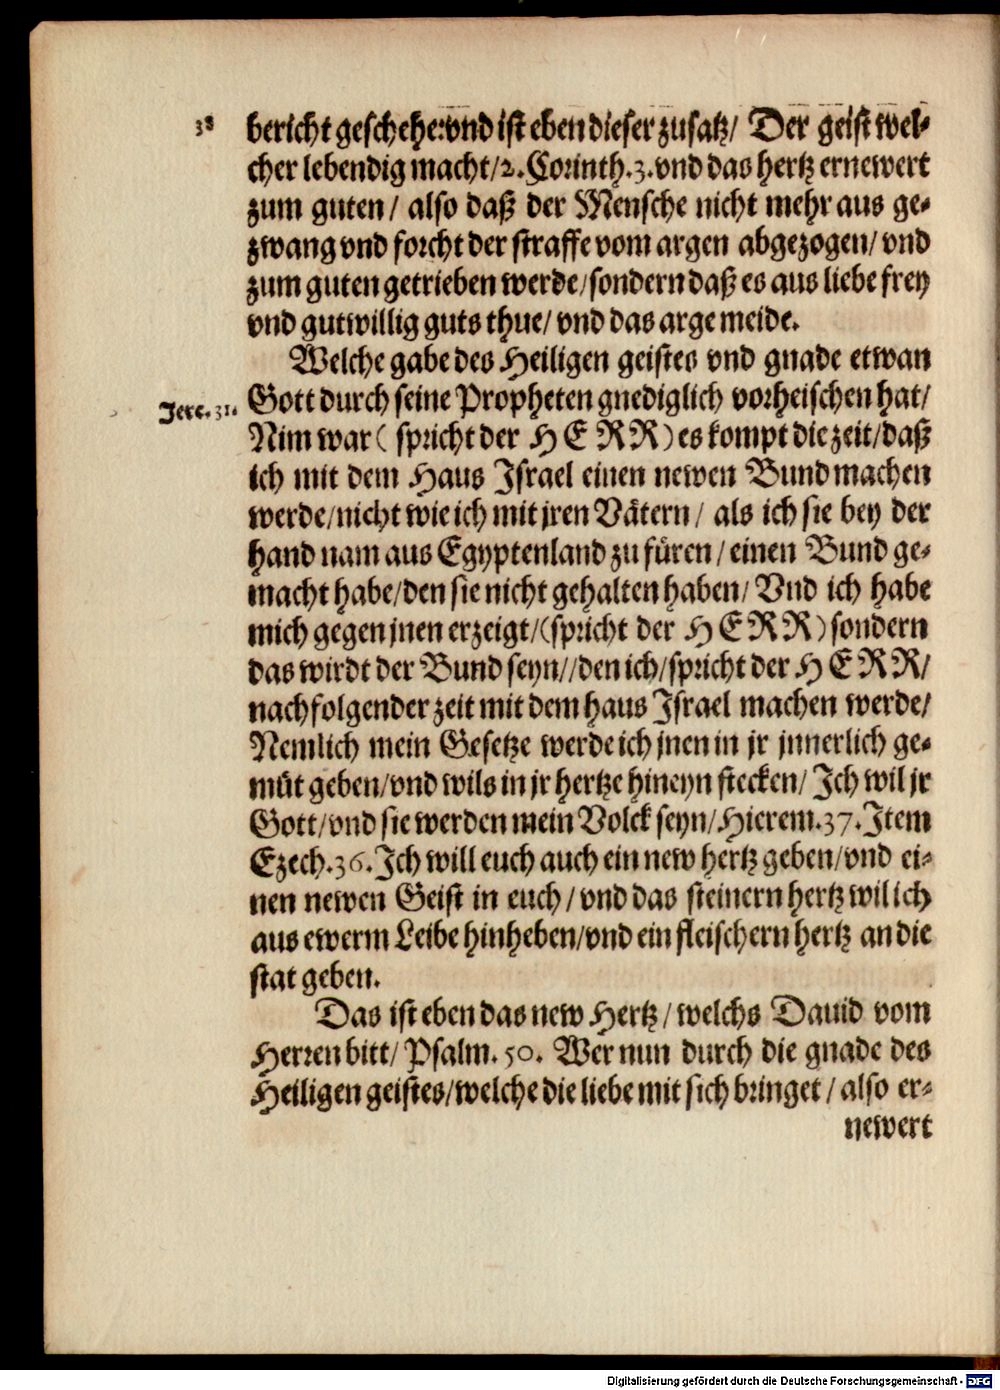 38
bericht geschehe: vnd ist eben dieser zusatz/ Der geist wel-
cher lebendig macht/2. Corinth.3. vnd das hertz ernewert
zum guten/ also daß der Mensche nicht mehr aus ge-
zwang vnd forcht der straffe vom argen abgezogen/ vnd
zum guten getrieben werde/sondern daß es aus liebe frey
vnd gutwillig guts thue/ vnd das arge meide.
Welche gabe des Heiligen geistes vnd gnade etwan
Jere.31.
Gott durch seine Propheten gnediglich vorheischen hat/
Nim war ( spricht der HERR) es kompt die zeit/daß
ich mit dem Haus Israel einen newen Bund machen
werde/nicht wie ich mit jren Vätern/ als ich sie bey der
hand nam aus Egyptenland zu füren/einen Bund ge-
macht habe/den sie nicht gehalten haben/ Vnd ich habe
mich gegen jnen erzeigt/(spricht der HERR) sondern
das wirdt der Bund seyn//den ich/spricht der HERR/
nachfolgender zeit mit dem haus Israel machen werde/
Nemlich mein Gesetze werde ich jnen in jr jnnerlich ge-
müt geben/vnd wils in jr hertze hineyn stecken/ Ich wil jr
Gott/vnd sie werden mein Volck seyn/Hierem.37. Item
Ezech.36. Ich will euch auch ein new hertz geben/vnd ei-
nen newen Geist in euch/vnd das steinern hertz wil ich
aus ewerm Leibe hinheben/vnd ein fleischern hertz an die
stat geben.
Das ist eben das new Hertz/welchs Dauid vom
Herren bitt/ Psalm. 50. Wer nun durch die gnade des
Heiligen geistes/welche die liebe mit sich bringet/also er-
newert
Digitalisierung gefördert durch die Deutsche Forschungsgemeinschaft - DFG